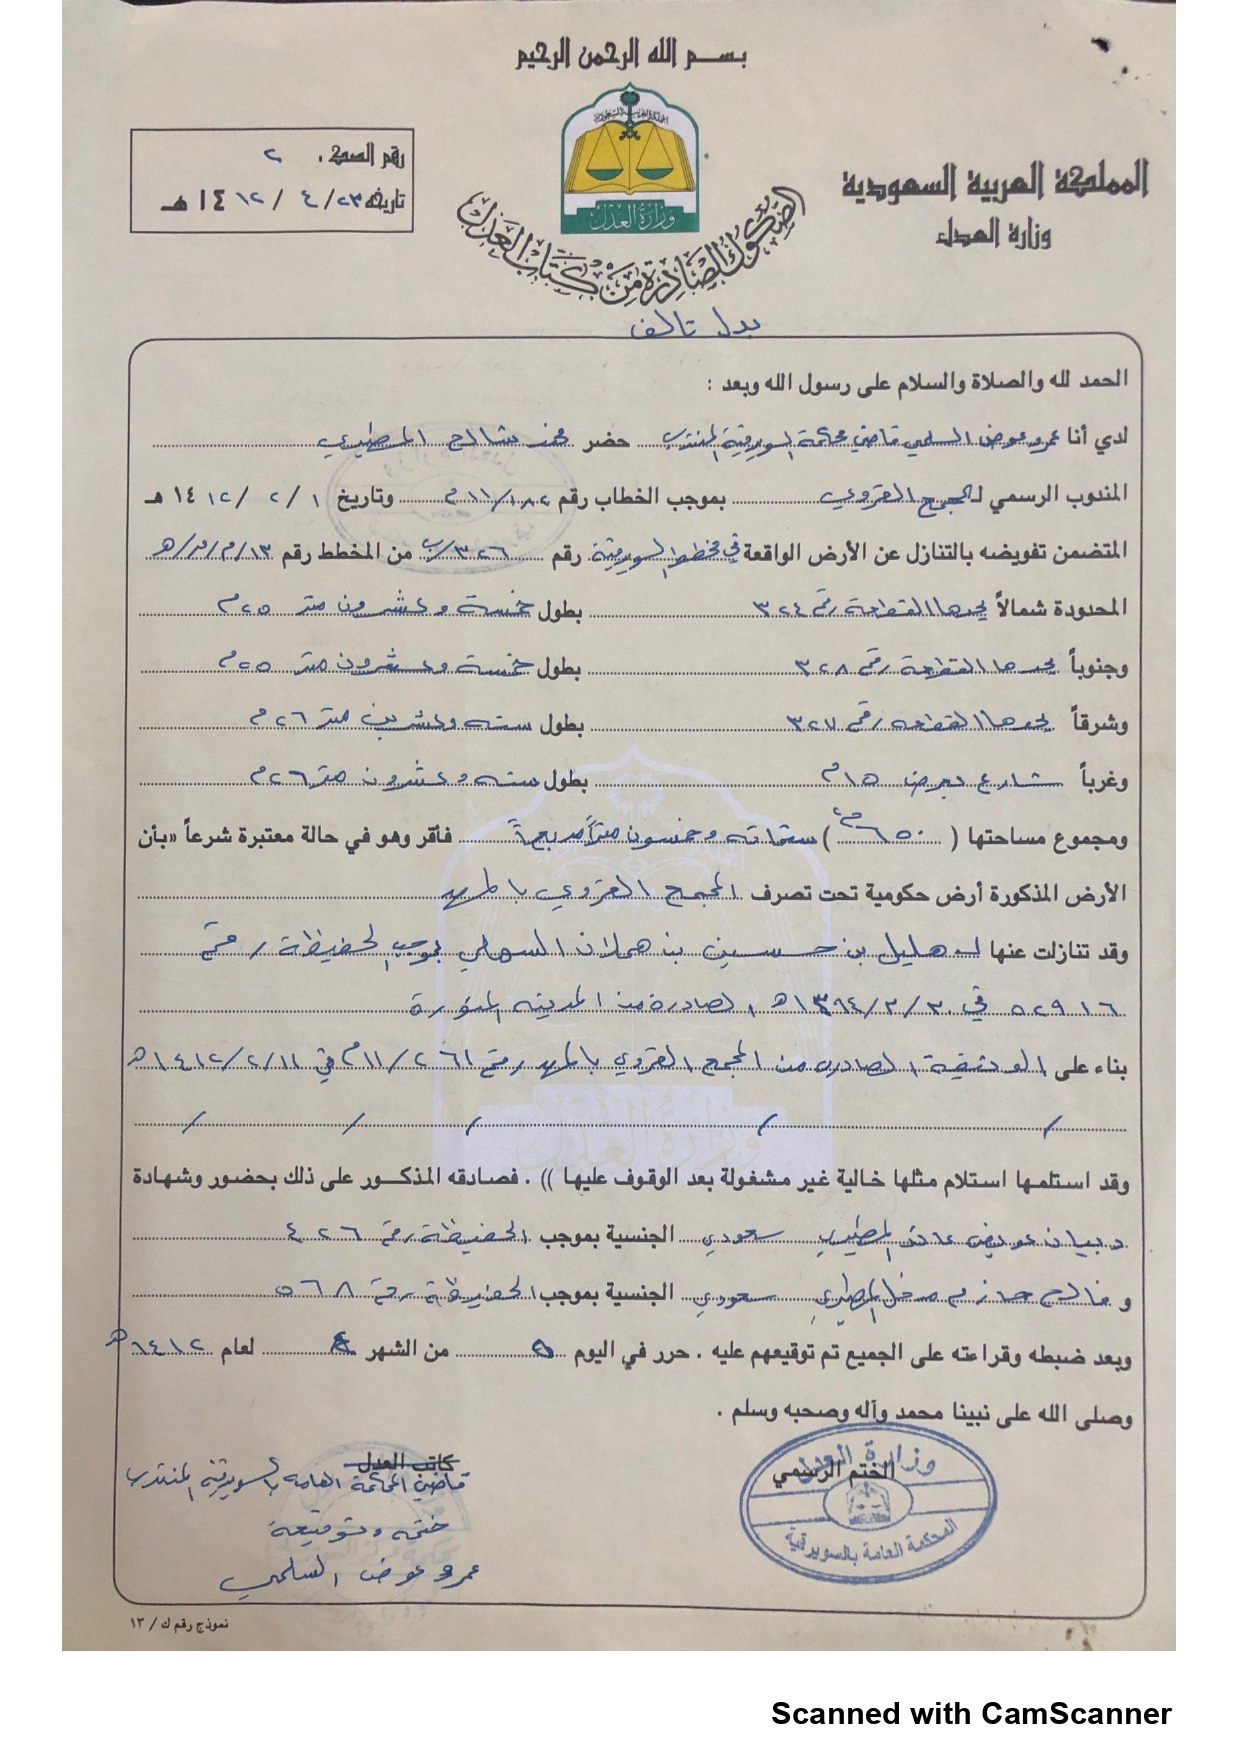 بسم الله الرحمن الرحيم
المملكة العربية السعودية
وزارة العدل
المملكة العربية السعودية
وزارة العدل
الصكوك الصادرة من كتاب العدل
رقم الصك . ٢
تاريخه ٢٣ / ٤ / ١٤١٢ هـ
بدل تالف
الحمد لله والصلاة والسلام على رسول الله وبعد :
لدي أنا عمرو عوض السلمي قاضي محكمة السويرقية المنتدب حضر شالح المطيري
المندوب الرسمي لـ المجمع القروي بموجب الخطاب رقم ١١/١٨٢م وتاريخ ١ / ٢ / ١٤١٢ هـ
المتضمن تفويضه بالتنازل عن الأرض الواقعة في مخطط السويرقية رقم ٣٢٦/ب من المخطط رقم ١٣/م/م/هـ
المحدودة شمالاً يحدها القطعة رقم ٣٢٤ بطول خمسة وعشرون متر ٢٥م
وجنوباً يحدها القطعة رقم ٣٢٨ بطول خمسة وعشرون متر ٢٥م
وشرقاً يحدها القطعه رقم ٣٢٧ بطول سته وعشرين متر ٢٦م
وغرباً شارع بعرض ١٥م بطول سته وعشرون متر ٢٦م
ومجموع مساحتها ( ٦٥٠م٢ ) ستمائه وخمسون متراً مربعاً فأقر وهو في حالة معتبرة شرعاً «بأن
الأرض المذكورة أرض حكومية تحت تصرف المجمع القروي بالمهد
وقد تنازلت عنها لـ هليل بن حسين بن هملان السهلي بموجب الحفيظة رقم
٥٢٩١٦ في ٣٠/٣/١٣٦٤هـ الصادرة من المدينه المنورة
بناء على الوثيقة الصادره من المجمع القروي بالمهد رقم ١١/٢٦١م في ١٤١٢/٢/١١هـ
وقد استلمها استلام مثلها خالية غير مشغولة بعد الوقوف عليها )) . فصادقه المذكور على ذلك بحضور وشهادة
دبيان عويض عائذ المطيري سعودي الجنسية بموجب الحفيظة رقم ٤٢٦
و فالح حازم مدخل المطيري سعودي الجنسية بموجب الحفيظة رقم ٥٦٨
وبعد ضبطه وقراءته على الجميع تم توقيعهم عليه . حرر في اليوم ٥ من الشهر ٤ لعام ١٤١٢هـ
وصلى الله على نبينا محمد وآله وصحبه وسلم .
الختم الرسمي
وزارة العدل
المحكمة العامة بالسويرقية
كاتب العدل
قاضي المحكمة العامه بالسويرقية المنتدب
ختمه وتوقيعه
عمرو عوض السلمي
نموذج رقم ك / ١٣
Scanned with CamScanner